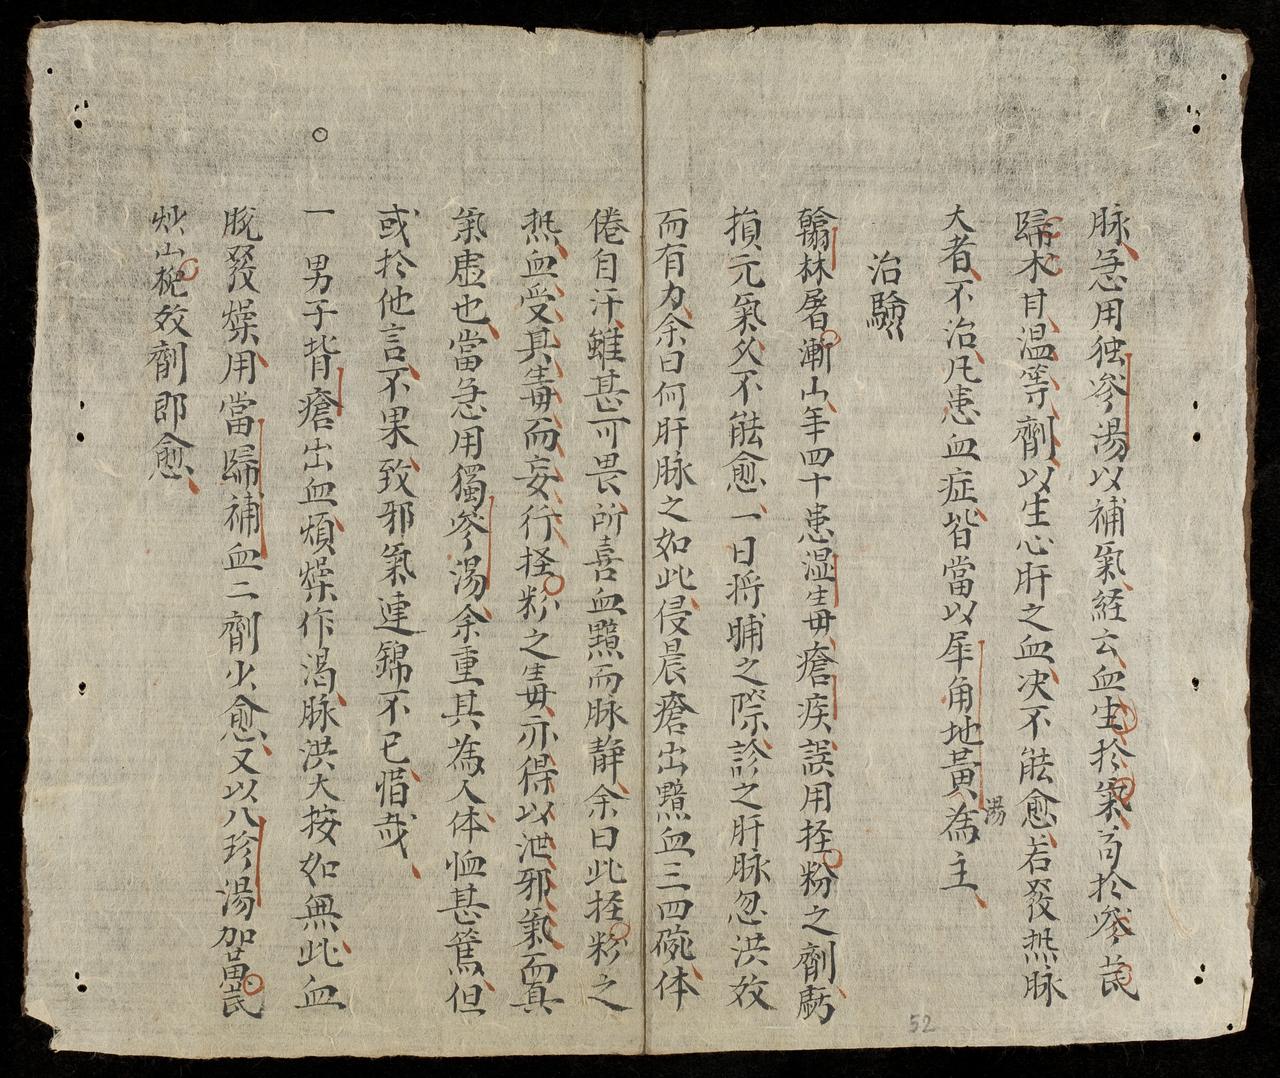 脉急用独參湯以補氣経云血生於氣苟於參芪
歸术甘温等劑以生心肝之血决不能愈若發热脉
大者不治凢患血症皆當以犀角地黃湯為主
治驗
翰林屠漸山年四十患湿毒瘡疾誤用挃粉之劑虧
損元氣久不能愈一日将晡之際診之肝脉忽洪效
而有力余曰何肝脉之如此侵晨瘡出黯血三四碗体
倦自汗雖甚可畏所喜血黯而脉静余曰此挃粉之
热血受其毒而妄行挃粉之毒亦得以泄邪氣而真
氣虚也當急用獨參湯余重其為人体恤甚篤但
或於他言不果致邪氣連錦不已惜哉
一男子背瘡出血煩燥作渴脉洪大按如無此血
脫發燥用當歸補血二劑少愈又以八珍湯加黃芪
炒山梔效劑即愈
52